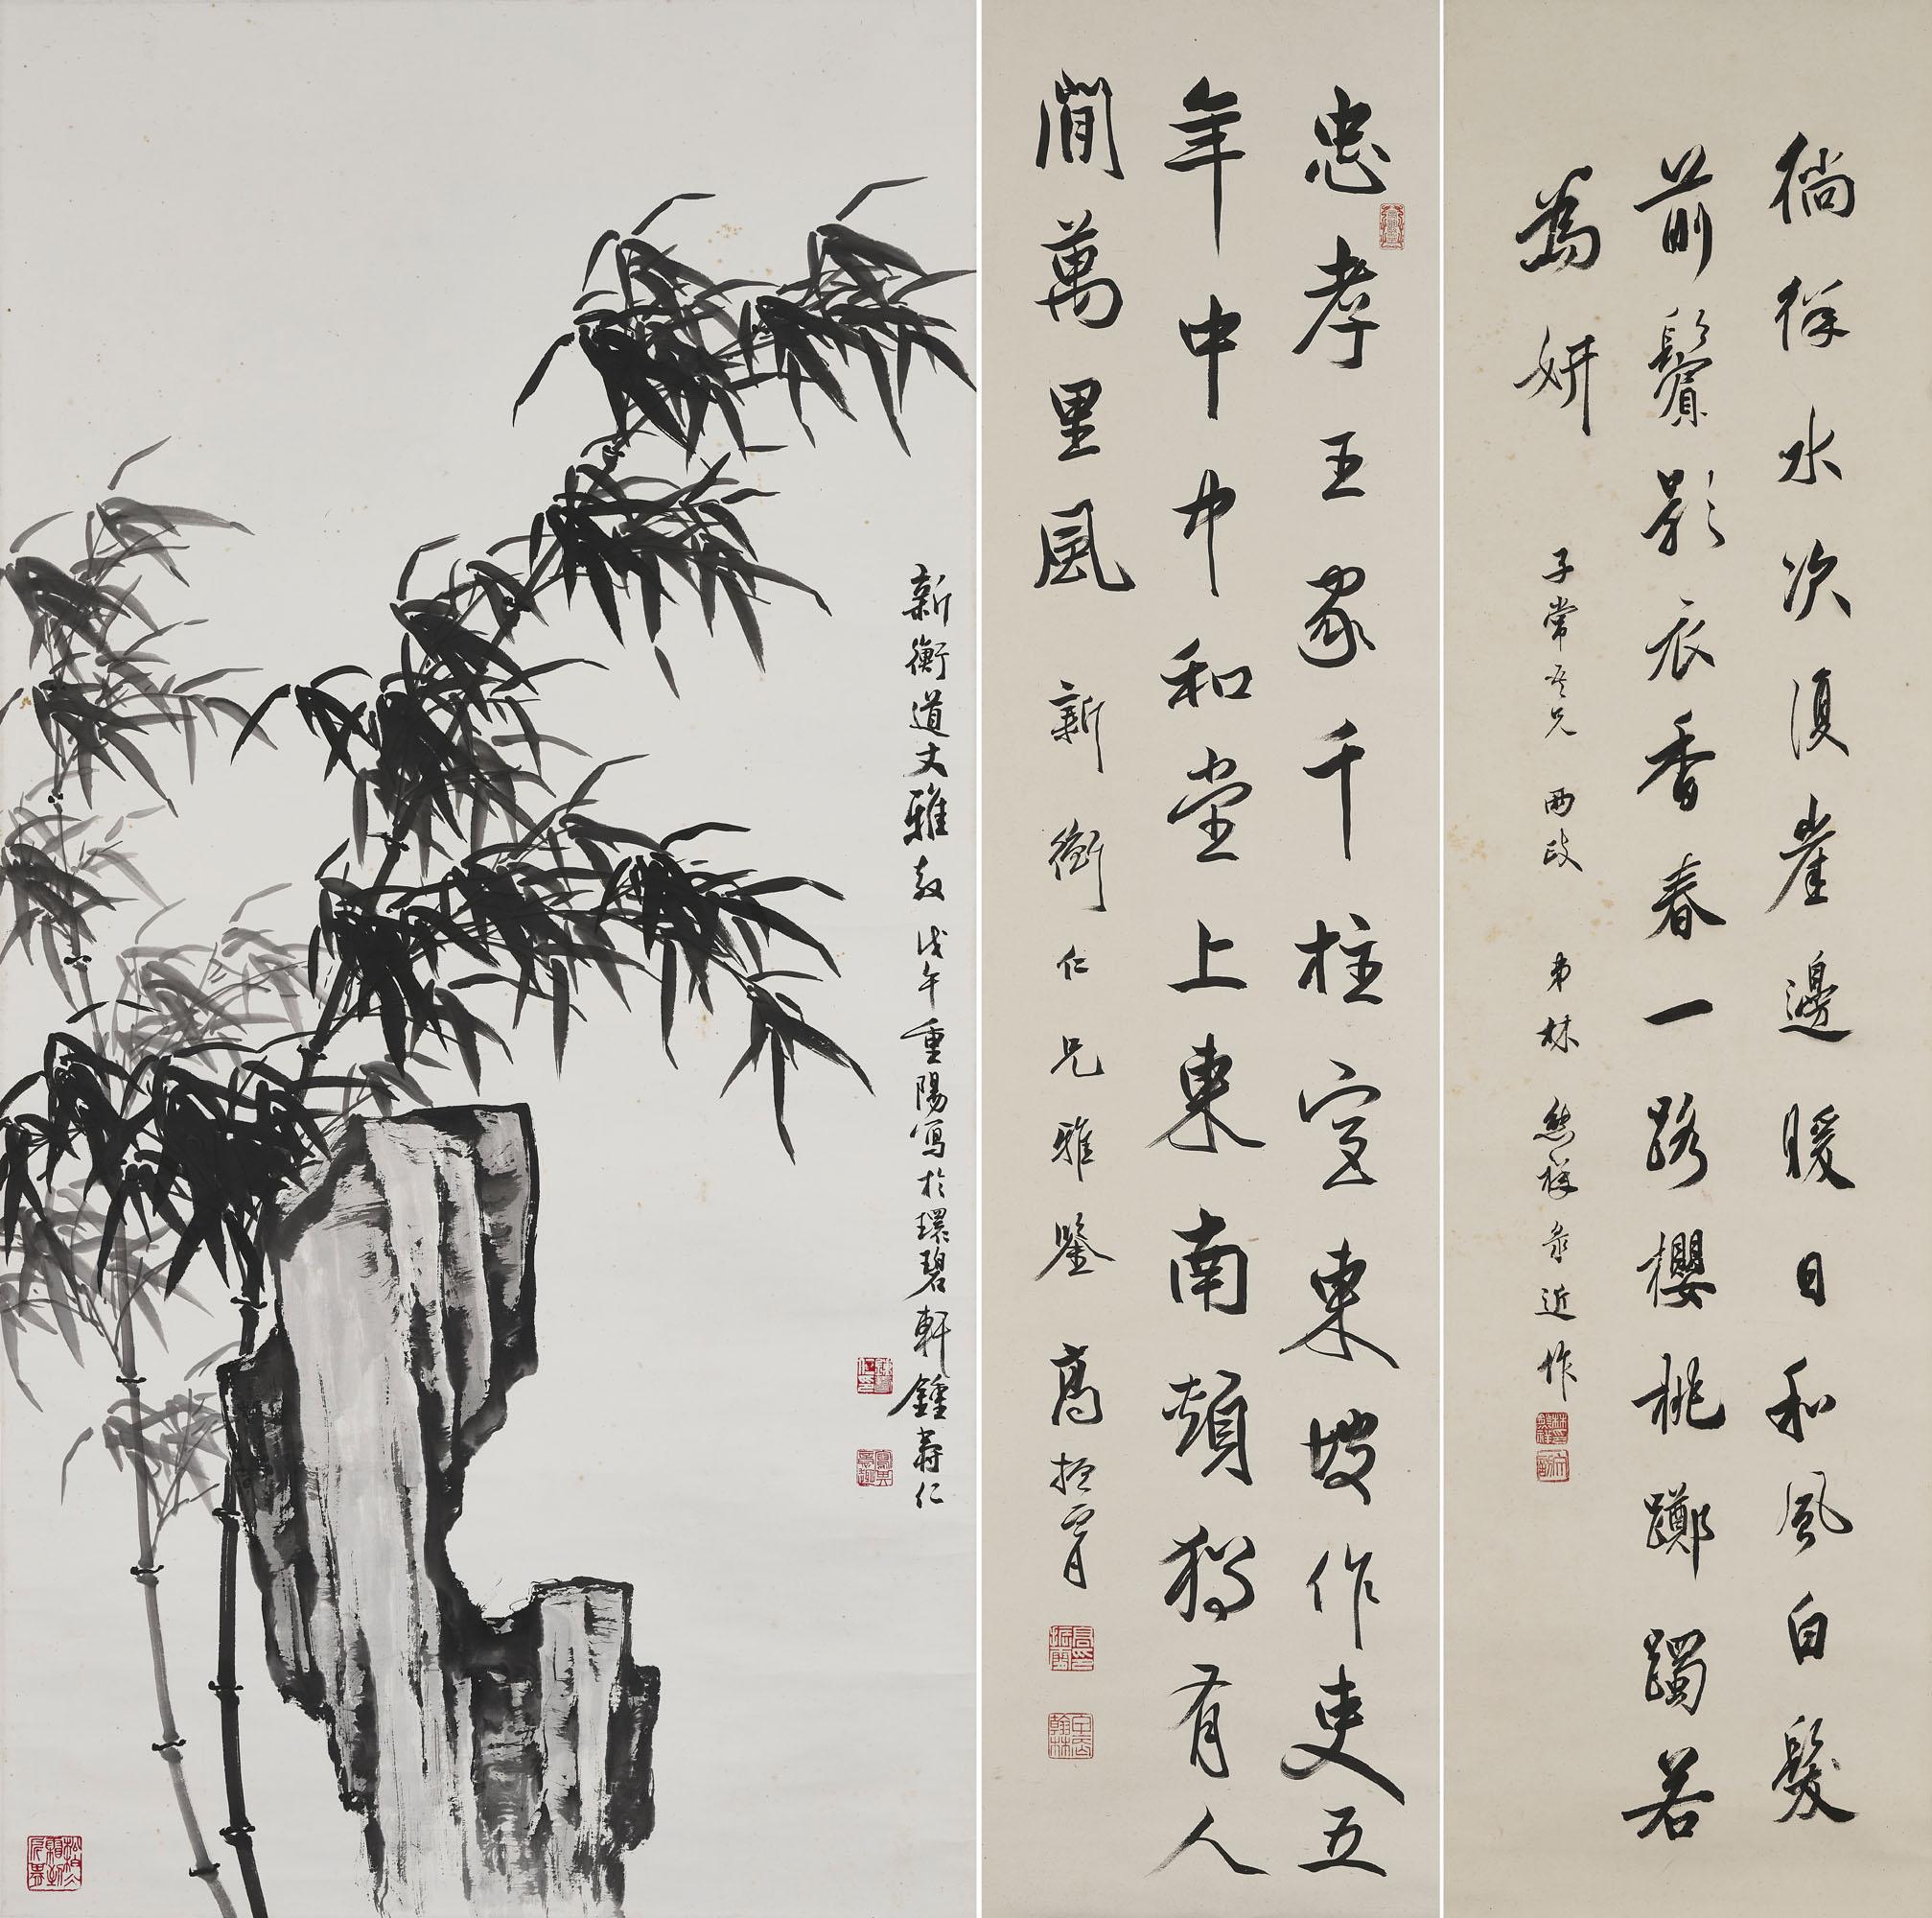 徜徉水次復崖邊暖日和風白髮
前鬢影衣香春一路櫻桃躑躅若
為妍
子常吾兄 兩政 弟林熊祥录近作
忠孝王家千柱宮東坡作吏五
年中中和堂上東南頰獨有人
間萬里風 新衡仁兄雅鑒 高振霄
新衡道丈雅教 戊午重陽寫於環碧軒鍾壽仁